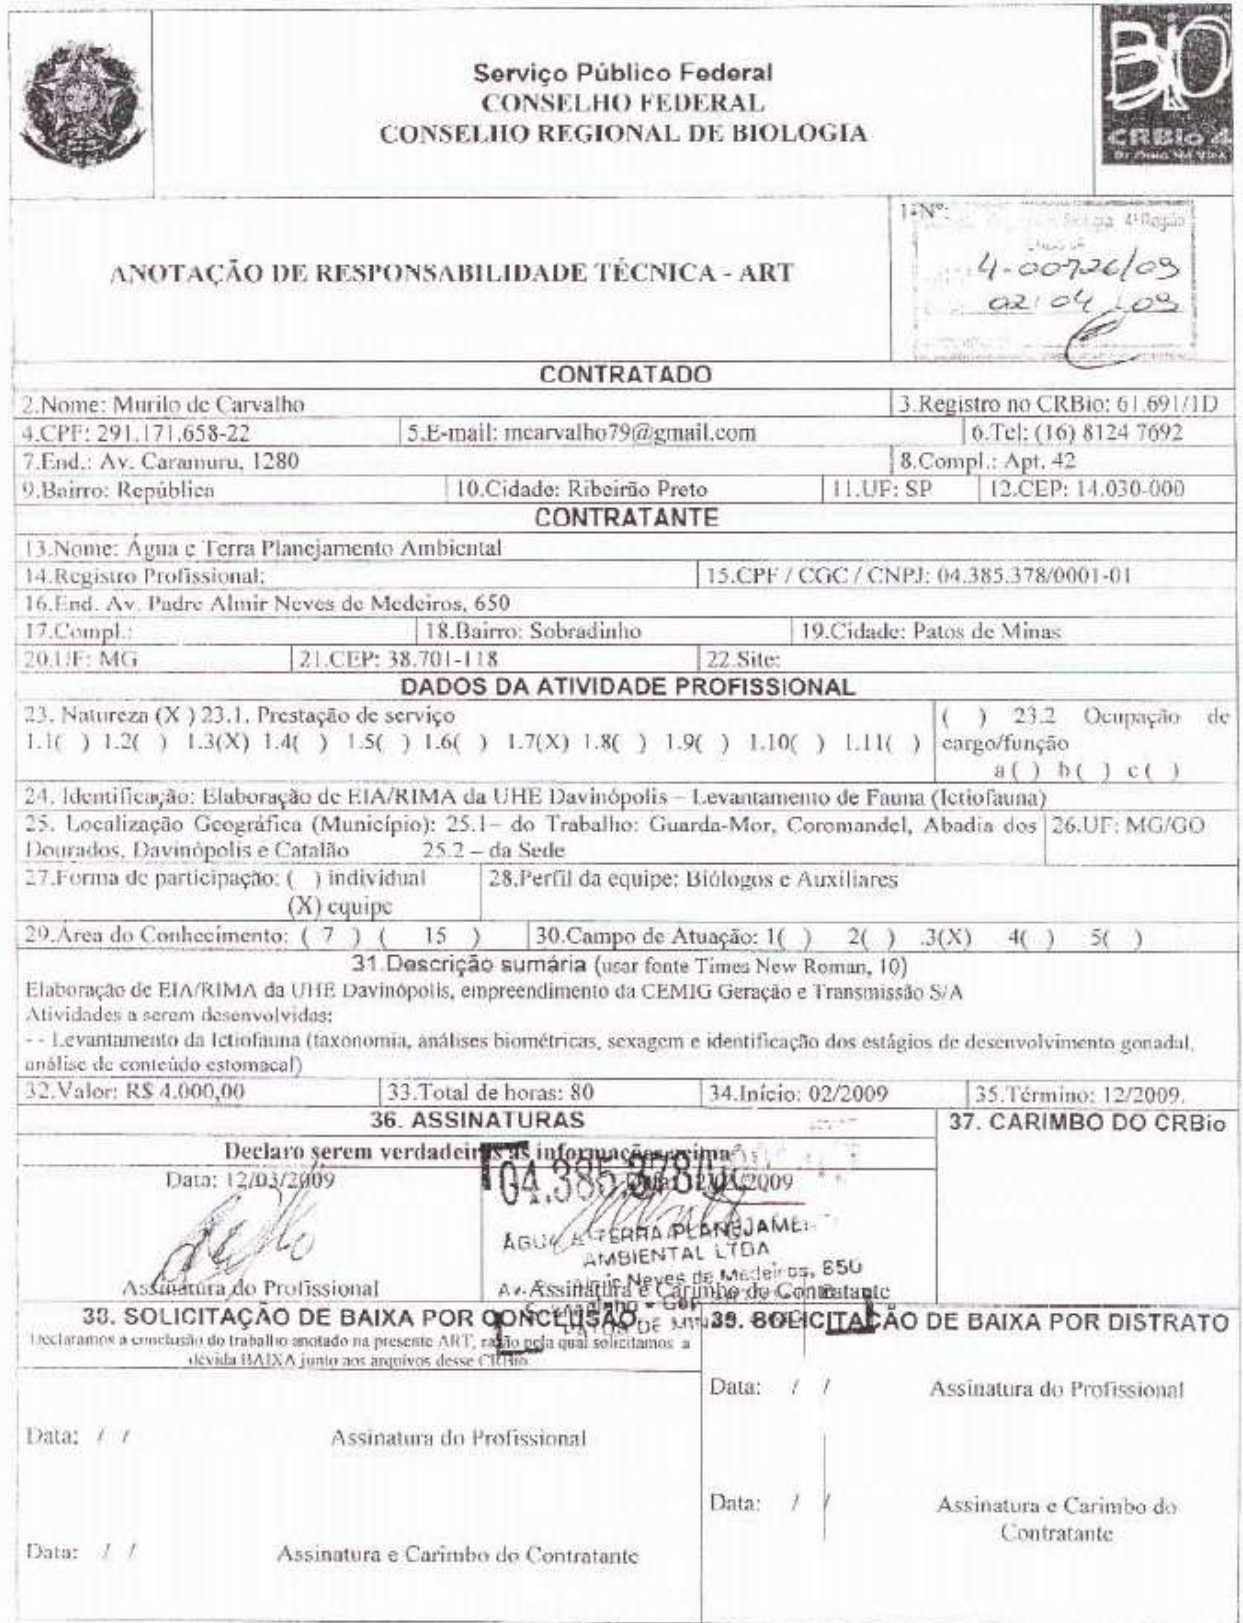 Serviço Público Federal
CONSELHO FEDERAL
CONSELHO REGIONAL DE BIOLOGIA
BiO
CRBio 4
ANOTAÇÃO DE RESPONSABILIDADE TÉCNICA - ART
1-Nº:
4ª Região
4-00726/09
02 04 09
CONTRATADO
2.Nome: Murilo de Carvalho
3.Registro no CRBio: 61.691/1D
4.CPF: 291.171.658-22
5.E-mail: mcarvalho79@gmail.com
6.Tel: (16) 8124 7692
7.End.: Av. Caramuru, 1280
8.Compl.: Apt. 42
9.Bairro: República
10.Cidade: Ribeirão Preto
11.UF: SP
12.CEP: 14.030-000
CONTRATANTE
13.Nome: Água e Terra Planejamento Ambiental
14.Registro Profissional:
15.CPF / CGC / CNPJ: 04.385.378/0001-01
16.End. Av. Padre Almir Neves de Medeiros, 650
17.Compl.:
18.Bairro: Sobradinho
19.Cidade: Patos de Minas
20.UF: MG
21.CEP: 38.701-118
22.Site:
DADOS DA ATIVIDADE PROFISSIONAL
23. Natureza (X ) 23.1. Prestação de serviço
1.1( ) 1.2( ) 1.3(X) 1.4( ) 1.5( ) 1.6( ) 1.7(X) 1.8( ) 1.9( ) 1.10( ) 1.11( )
( ) 23.2 Ocupação de
cargo/função
a ( ) b ( ) c ( )
24. Identificação: Elaboração de EIA/RIMA da UHE Davinópolis – Levantamento de Fauna (Ictiofauna)
25. Localização Geográfica (Município): 25.1– do Trabalho: Guarda-Mor, Coromandel, Abadia dos
Dourados, Davinópolis e Catalão 25.2 – da Sede
26.UF: MG/GO
27.Forma de participação: ( ) individual
(X) equipe
28.Perfil da equipe: Biólogos e Auxiliares
29.Área do Conhecimento: ( 7 ) ( 15 )
30.Campo de Atuação: 1( ) 2( ) .3(X) 4( ) 5( )
31.Descrição sumária (usar fonte Times New Roman, 10)
Elaboração de EIA/RIMA da UHE Davinópolis, empreendimento da CEMIG Geração e Transmissão S/A
Atividades a serem desenvolvidas:
- - Levantamento da Ictiofauna (taxonomia, análises biométricas, sexagem e identificação dos estágios de desenvolvimento gonadal,
análise de conteúdo estomacal)
32.Valor: R$ 4.000,00
33.Total de horas: 80
34.Início: 02/2009
35.Término: 12/2009.
36. ASSINATURAS
37. CARIMBO DO CRBio
Declaro serem verdadeiras as informações acima
Data: 12/03/2009
04.385.378/
2009
ÁGUA E TERRA PLANEJAMEN
AMBIENTAL LTDA
Neves de Medeiros, 650
Assinatura do Profissional
Assinatura e Carimbo do Contratante
38. SOLICITAÇÃO DE BAIXA POR CONCLUSÃO
Declaramos a conclusão do trabalho anotado na presente ART, razão pela qual solicitamos a
devida BAIXA junto aos arquivos desse CRBio.
39. SOLICITAÇÃO DE BAIXA POR DISTRATO
Data: / / Assinatura do Profissional
Data: / / Assinatura do Profissional
Data: / / Assinatura e Carimbo do
Contratante
Data: / / Assinatura e Carimbo do Contratante